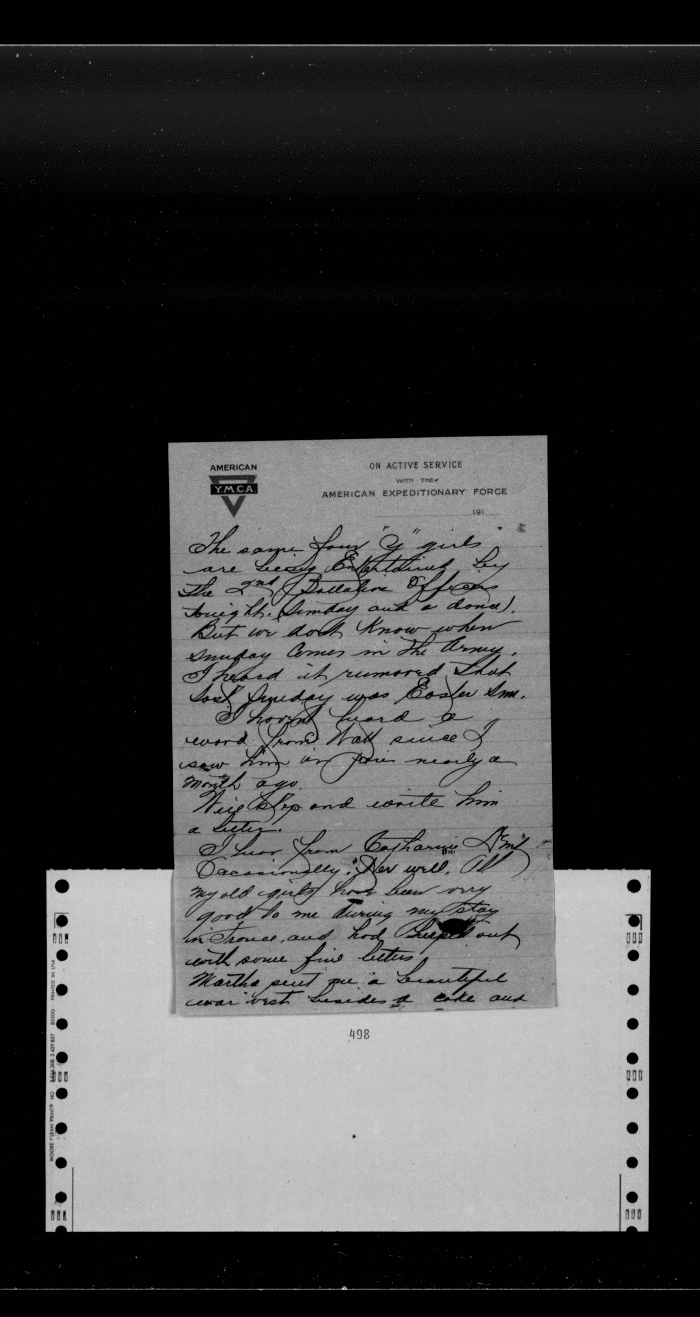 AMERICAN
YMCA
ON ACTIVE SERVICE
WITH THE
AMERICAN EXPEDITIONARY FORCE
191
The same four "Y" girls
are being Entertained by
the 2nd Battalion Officers
tonight. (Sunday and a dance).
But we don't Know when
sunday Comes in the Army.
I heard it rumored that
last Sunday was Easter Sun.
I havent heard a
word from Walt since I
saw him in Paris nearly a
month ago.
and write him
a letter.
I hear from Catharine
Occasionally. well, All
my old girls have been very
good to me during my stay
in France, and had helped out
with some fine letters.
Martha sent me a beautiful
war vest besides a cake and
498